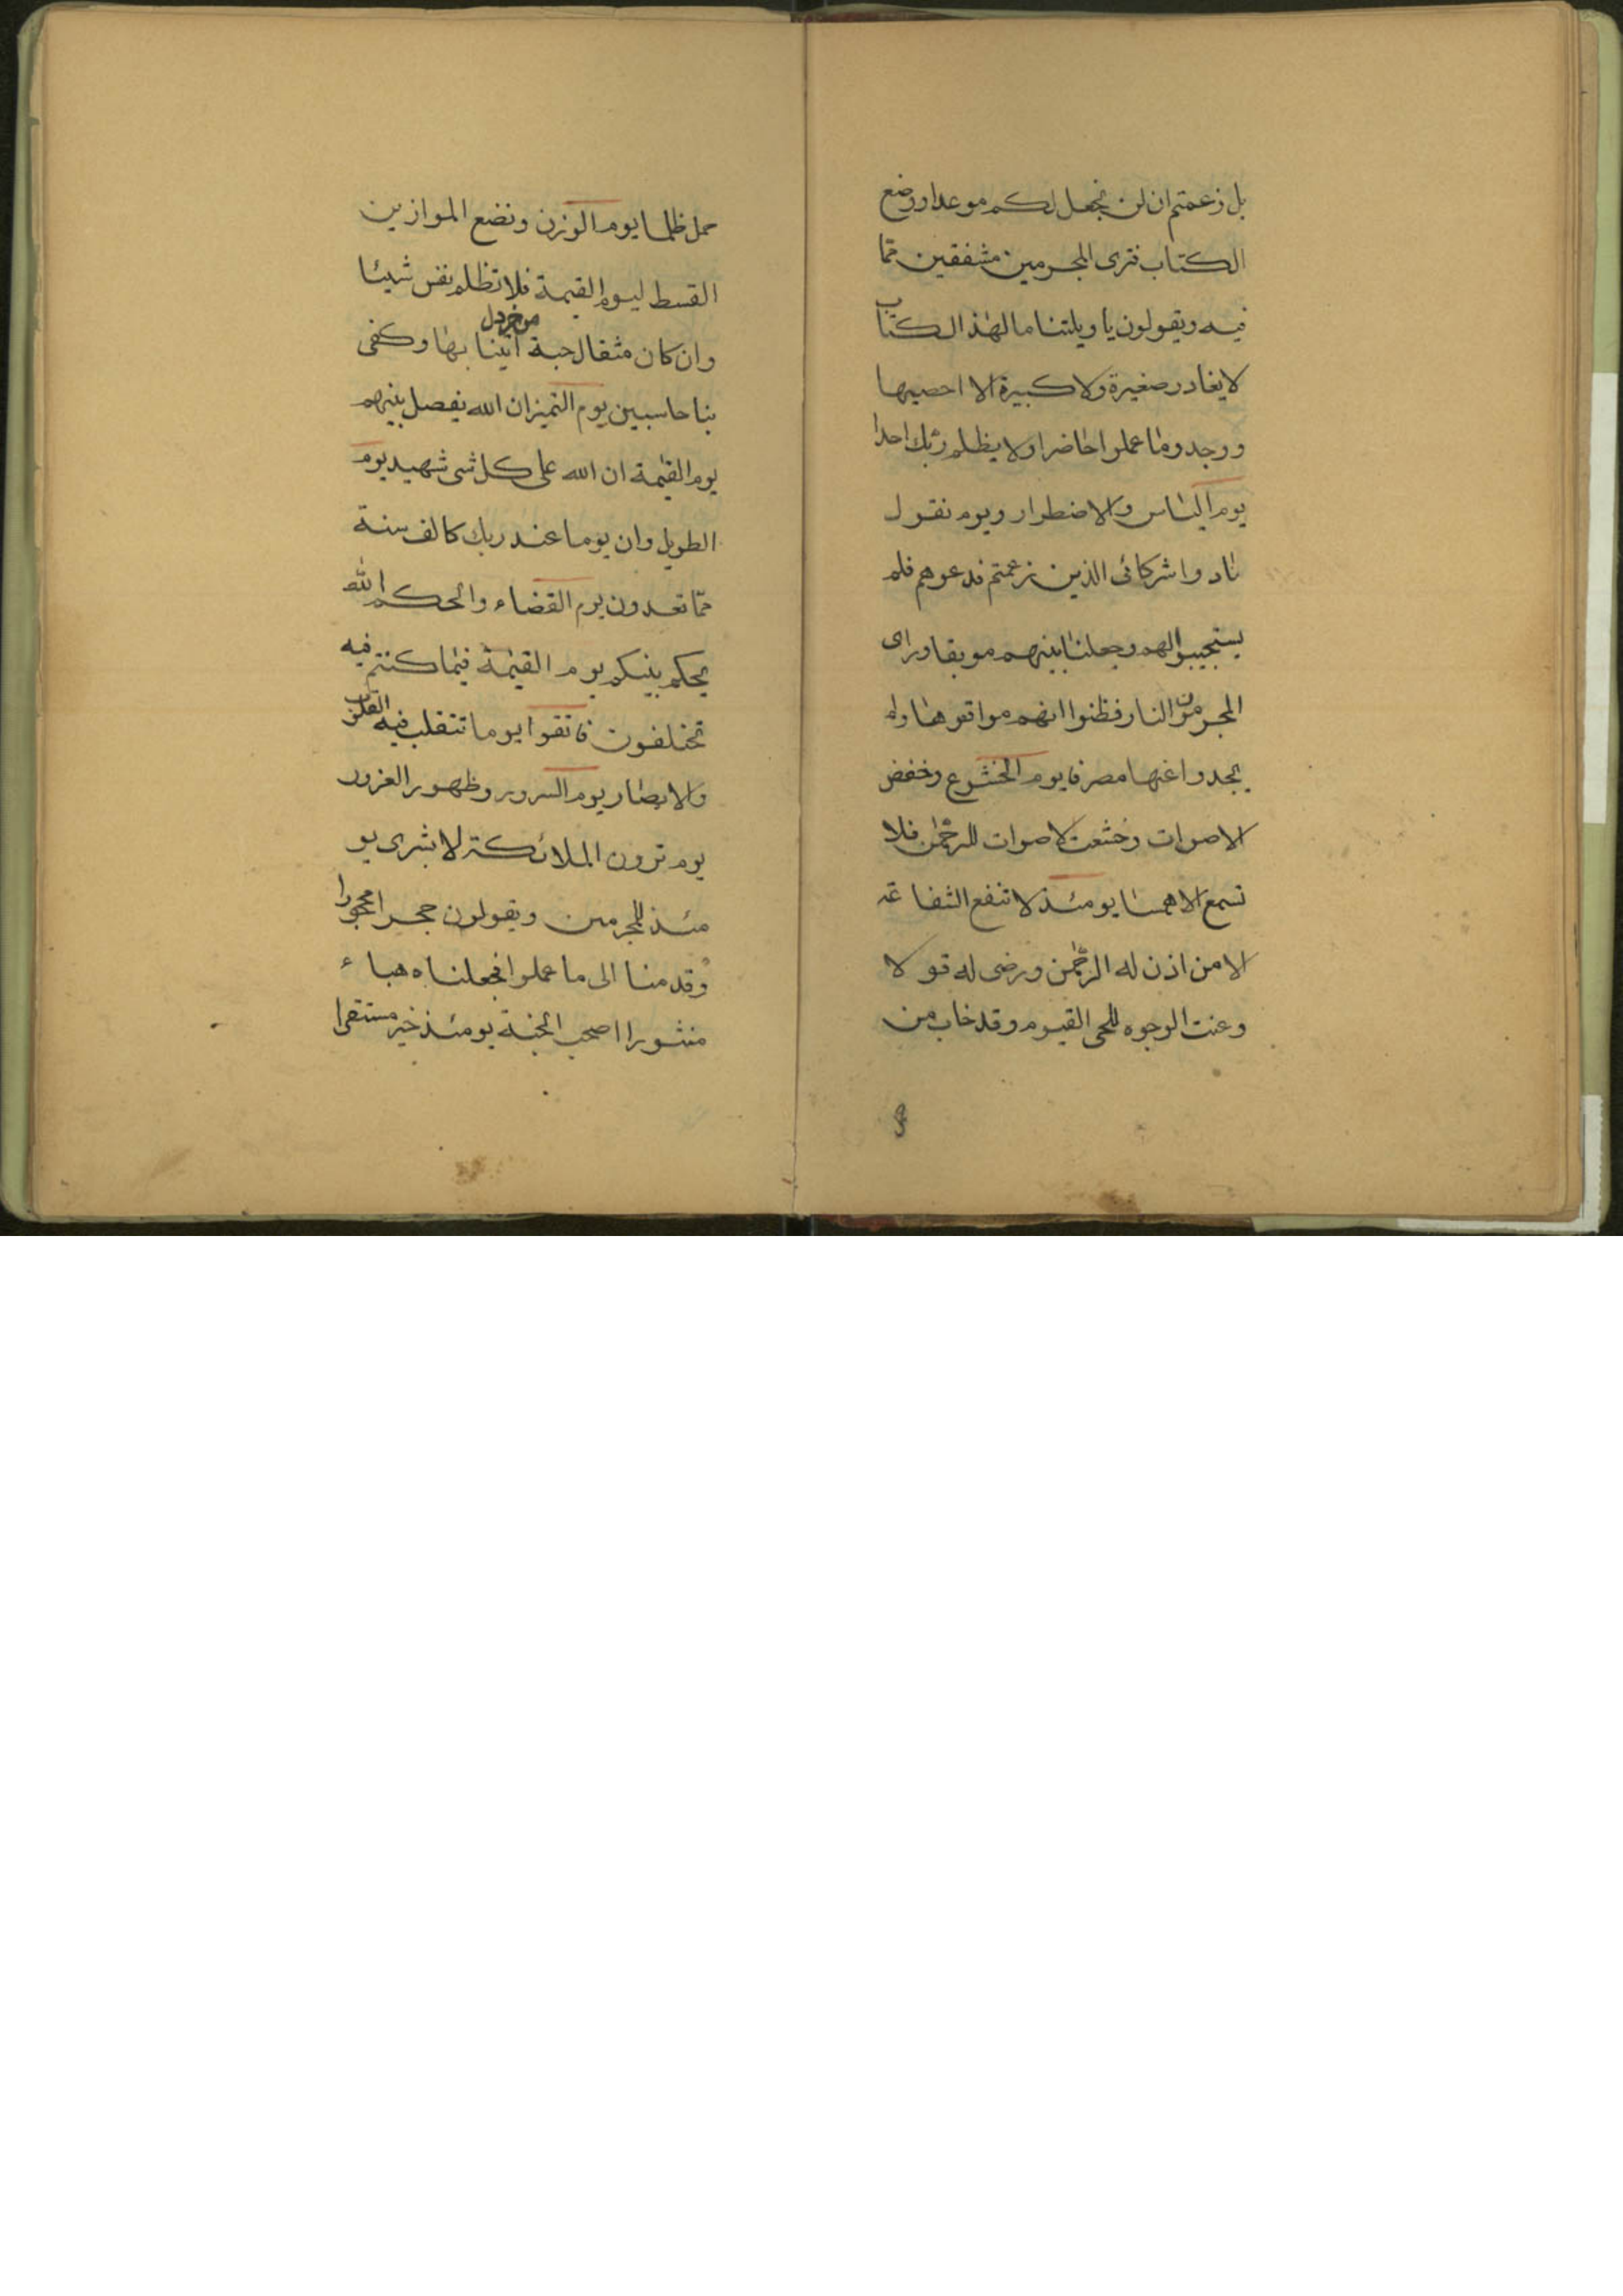 بل زعمتم ان لن نجعل لكم موعدا ووضع
الكتاب فترى المجرمين مشفقين مما
فيه ويقولون يا ويلتنا ما لهذا الكتاب
لا يغادر صغيرة ولا كبيرة الا احصيها
ووجدوا ما عملوا حاضرا ولا يظلم ربك احدا
يوم الياس والاضطرار ويوم نقول
نادوا شركائى الذين زعمتم فدعوهم فلم
يستجيبوا لهم وجعلنا بينهم موبقا وراى
المجرمون النار فظنوا انهم مواقعوها ولم
يجدوا عنها مصرفا يوم الخشوع وخفض
الاصوات وخشعت الاصوات للرحمن فلا
تسمع الا همسا يومئذ لا تنفع الشفاعة
الا من اذن له الرحمن ورضى له قولا
وعنت الوجوه للحى القيوم وقد خاب من
حمل ظلما يوم الوزن ونضع الموازين
القسط ليوم القيمة فلا تظلم نفس شيئا
وان كان مثقال حبة من خردل اتينا بها وكفى
بنا حاسبين يوم التميز ان الله يفصل بينهم
يوم القيمة ان الله على كل شى شهيد يوم
الطويل وان يوما عند ربك كالف سنة
مما تعدون يوم القضاء والحكم الله
يحكم بينكم يوم القيمة فيما كنتم فيه
تختلفون فاتقوا يوما تتقلب فيه القلوب
والابصار يوم السرور وظهور الغرور
يوم ترون الملائكة لا بشرى يو
مئذ للمجرمين ويقولون حجرا محجورا
وقدمنا الى ما عملوا فجعلناه هباء
منثورا اصحب الجنة يومئذ خير مستقرا